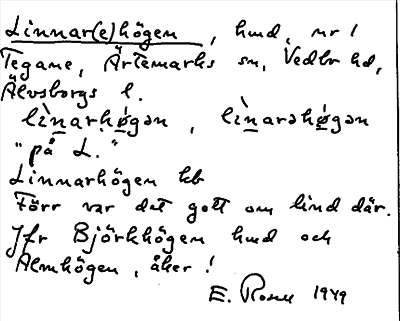 Linnar(e)högen, hmd, nr 1
Tegane, Ärtemarks sn, Vedbo hd,
Älvsborgs l.
lìnarhøgən, lìnarəhøgən
"på L."
Linnarhögen kb
Förr var det gott om lind där.
Jfr Björkhögen hmd och
Almhögen, åker!
E. Rosell 1949